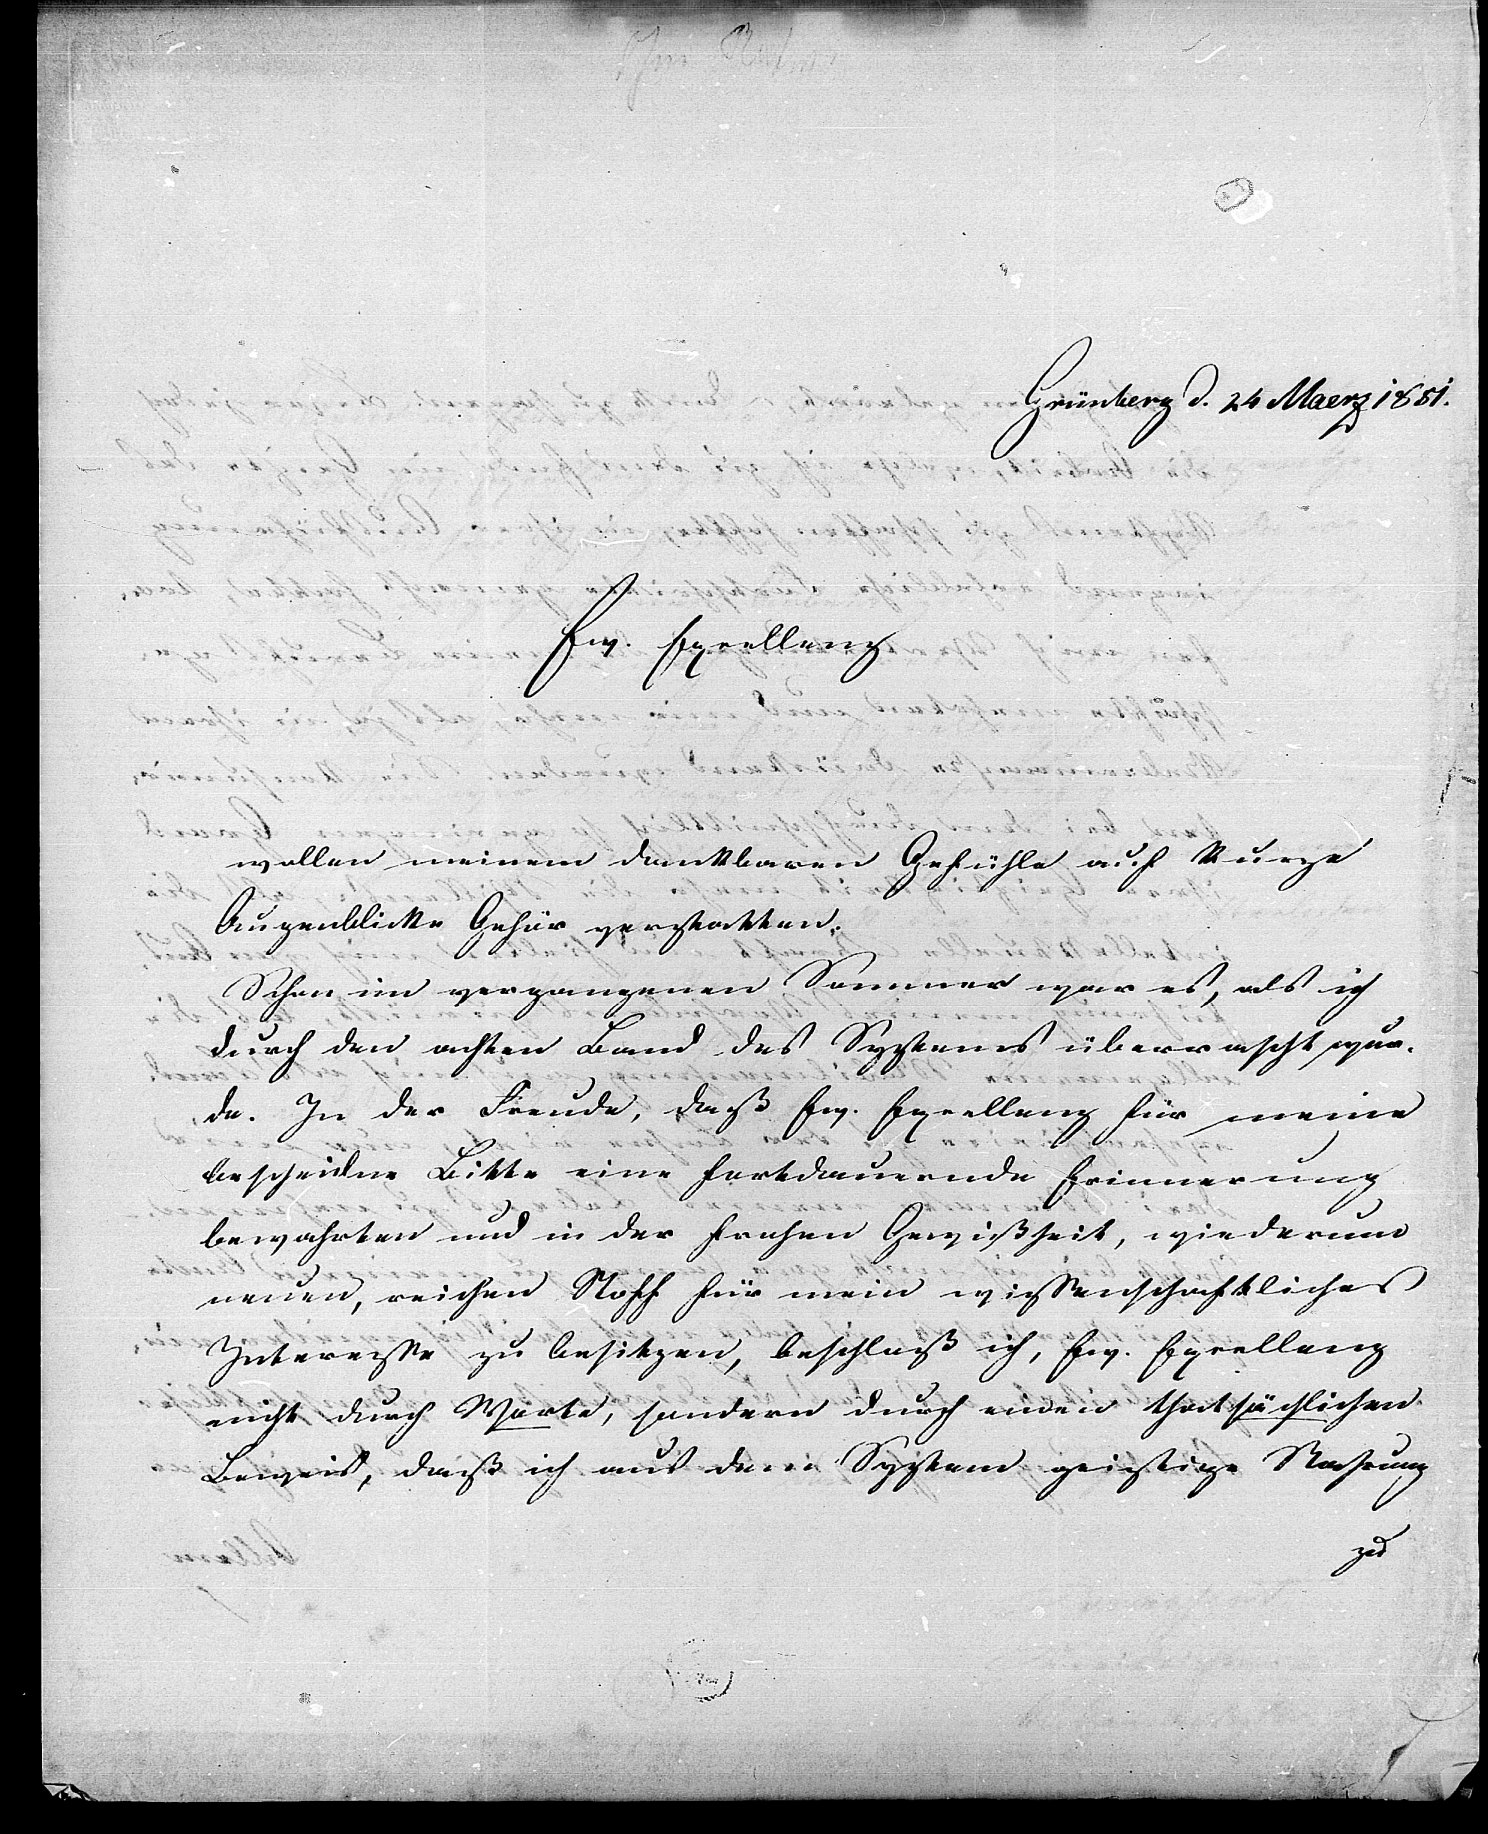 Grünberg d. 24 Maerz 1851.
Ew. Excellenz
wollen meinem dankbaren Gefühle auf kurze
Augenblicke Gehör verstatten.
Schon im vergangenen Sommer war es, als ich
durch den achten Band des Systems überrascht wur-
de. In der Freude, daß Ew. Excellenz für meine
bescheidne Bitte eine fortdauernde Erinnerung
bewahrten und in der frohen Gewißheit, wiederum
neuen, reichen Stoff für mein wissenschaftliches
Interesse zu besitzen, beschloß ich, Ew. Excellenz
nicht durch Worte, sondern durch einen thatsächlichen
Beweis, daß ich aus dem System geistige Nahrung
zu